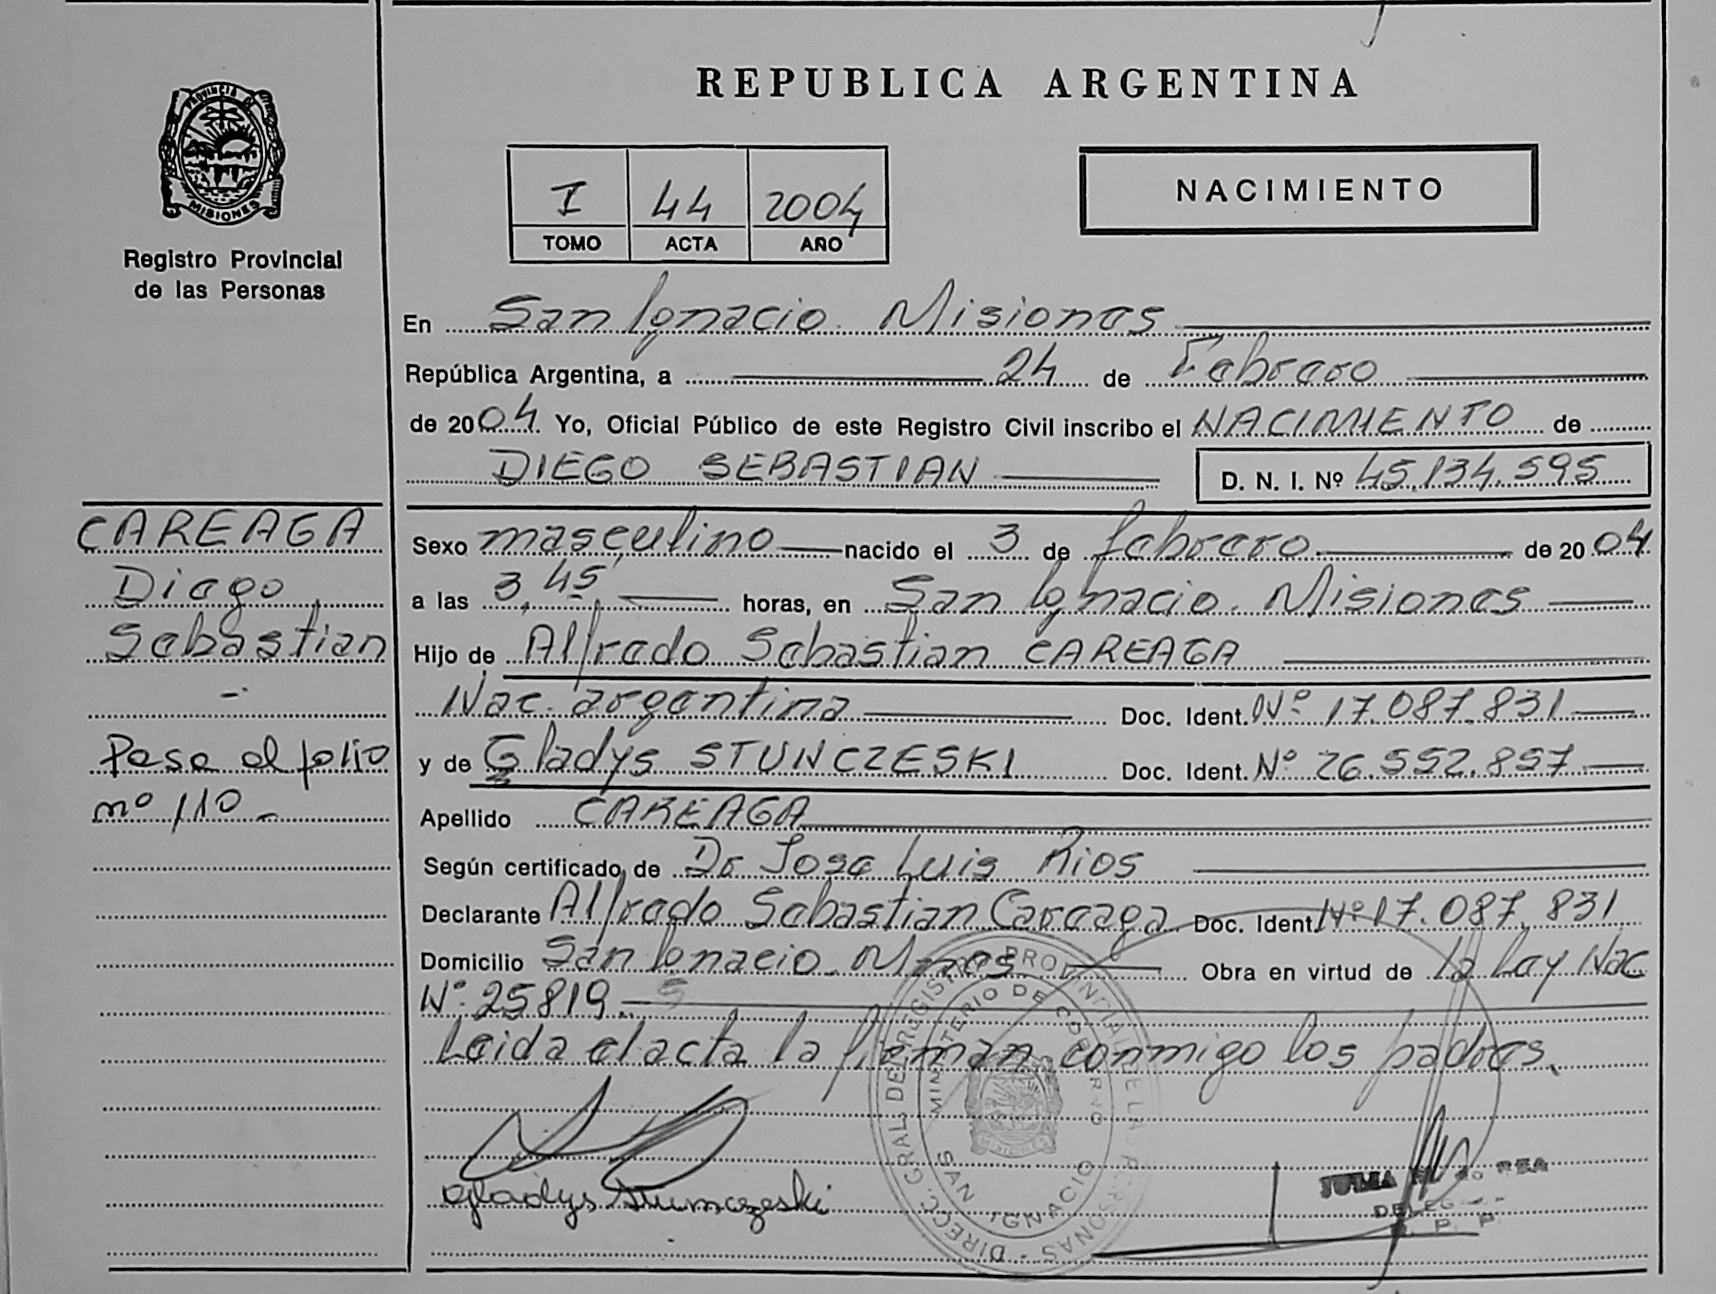 REPUBLICA ARGENTINA
PROVINCIA DE
MISIONES
Registro Provincial
de las Personas
I 44 2004
TOMO ACTA AÑO
NACIMIENTO
En San Ignacio. Misiones
República Argentina, a 24 de Febrero
de 2004. Yo, Oficial Público de este Registro Civil inscribo el NACIMIENTO de
DIEGO SEBASTIAN D. N. I. Nº 45.134.595
CAREAGA
Diego
Sebastian
Pasa al folio
nº 110
Sexo masculino nacido el 3 de febrero de 2004
a las 3,45 horas, en San Ignacio. Misiones
Hijo de Alfredo Sebastian CAREAGA
Nac. argentina Doc. Ident. Nº 17.087.831
y de Gladys STUNCZESKI Doc. Ident. Nº 26.552.857
Apellido CAREAGA
Según certificado de Dr Jose Luis Rios
Declarante Alfredo Sebastian Careaga Doc. Ident. Nº 17.087.831
Domicilio San Ignacio. Mnes Obra en virtud de la Ley Nac
Nº 25819
Leida el acta la firman conmigo los padres.
DIRECC. GRAL. DE REGISTRO PROVINCIAL DE LAS PERSONAS
MINISTERIO DE GOBIERNO
SAN IGNACIO
MISIONES
Gladys Stunczeski